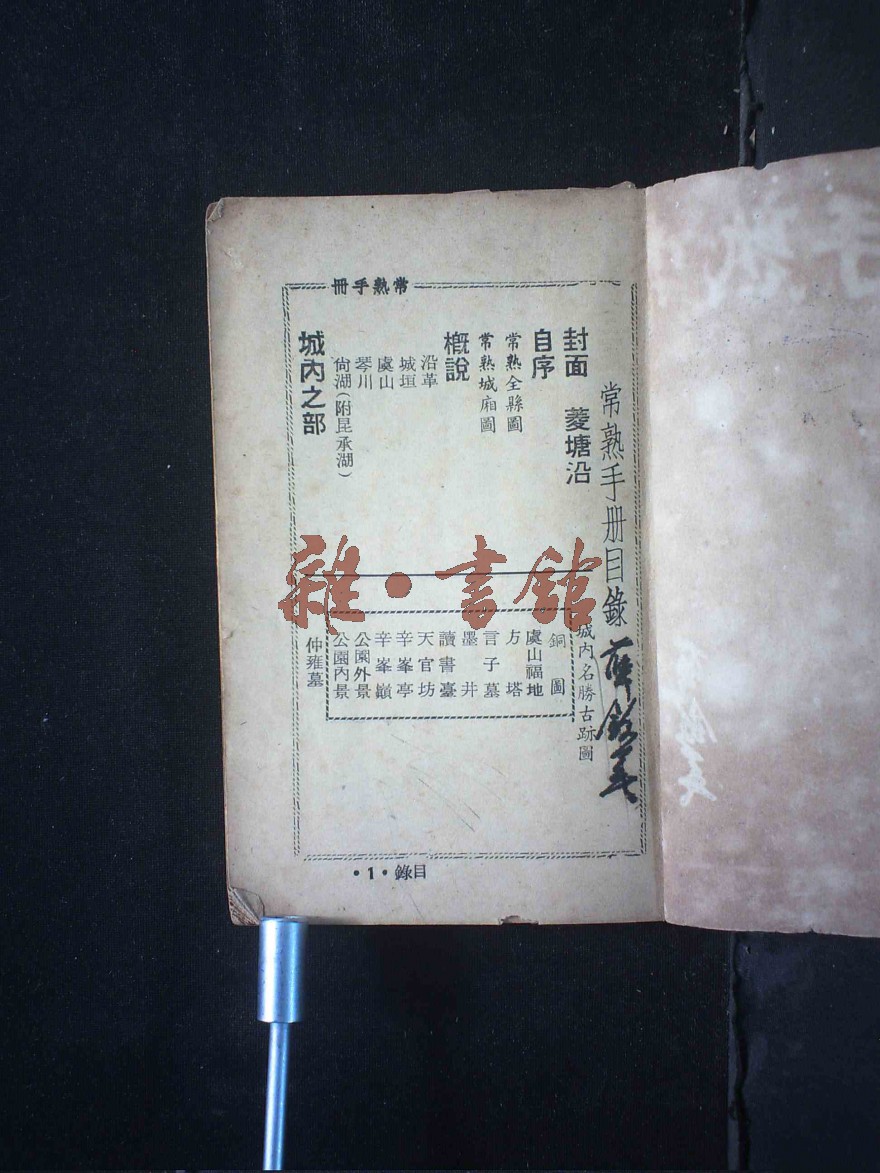 常熟手冊
常熟手册目錄
封面　菱塘沿
自序
常熟全縣圖
常熟城廂圖
概說
沿革
城垣
虞山
琴川
尙湖(附昆承湖)
城內之部
城內名勝古跡圖
銅圖
虞山福地
方塔
言子墓
墨井
讀書臺
天官坊
辛峯亭
辛峯巔
公園外景
公園內景
仲雍墓
目錄・1・
雜・書館